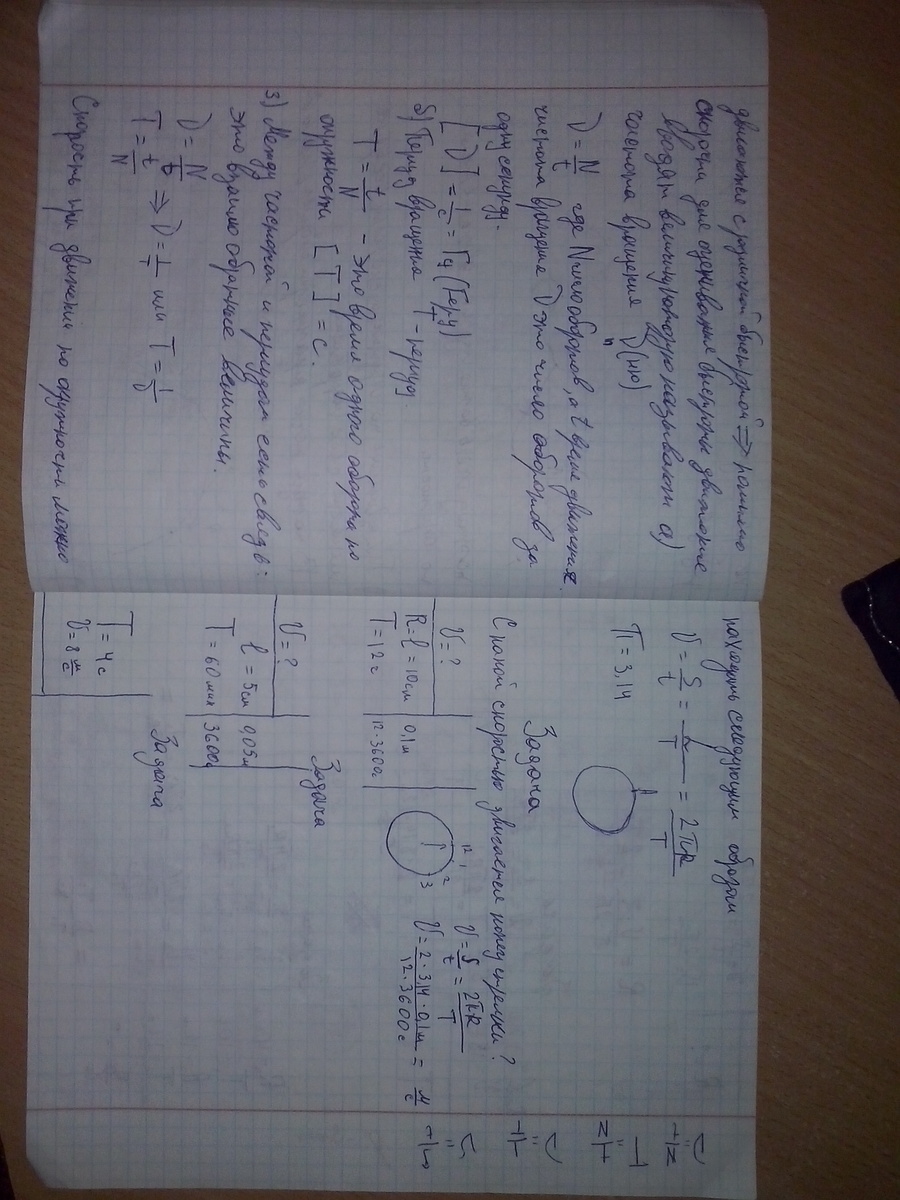 движется с различной быстротой ⇒ помимо
скорости для оценивания быстроты движения
вводят величину которую называют а)
частота вращения ν (ню)
ν = N/t где N число оборотов, а t время движения.
частота вращения ν это число оборотов за
одну секунду.
[ν] = 1/с = Гц (Герц)
б) Период вращения T - период
T = t/N - это время одного оборота по
окружности [T] = с.
3) Между частотой и периодом есть связь:
это взаимо обратные величины.
ν = N/t
T = t/N ⇒ ν = 1/T или T = 1/ν
Скорость при движении по окружности можно
находить следующим образом
υ = S/t = /T = 2πR/T
π = 3,14
Задача
С какой скоростью двигается конец стрелки?
υ = ?
R = l = 10 см 0,1 м
T = 12 ч 12·3600с
12 1 2 3
υ = S/t = 2πR/T
υ = 2·3,14·0,1м/12·3600с = м/с
Задача
υ = ?
l = 5 см 0,05м
T = 60 мин 3600с
Задача
T = 4 с
υ = 8 м/с